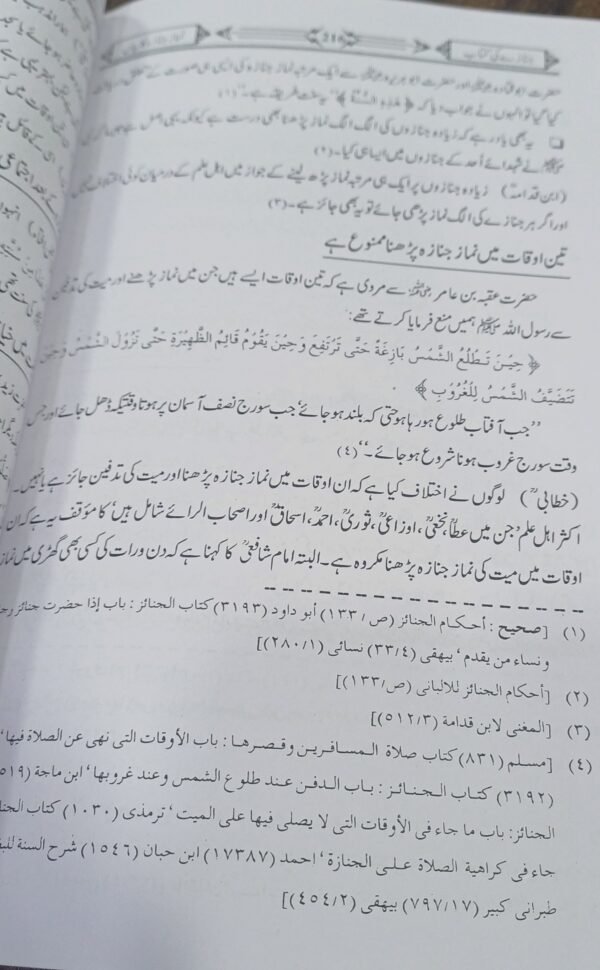 جنازے کی کتاب
حضرت ابو قتادہ رضی اللہ عنہ اور حضرت ابو ہریرہ رضی اللہ عنہ سے ایک مرتبہ نماز جنازہ کی ایسی ہی صورت کے متعلق
کیا گیا تو انہوں نے جواب دیا کہ ﴿هٰذِهِ السُّنَّةُ﴾ ”یہ سنت طریقہ ہے۔“ (۱)
❑ یہ بھی یاد رہے کہ زیادہ جنازوں کی الگ الگ نماز پڑھنا بھی درست ہے کیونکہ یہی اصل ہے
ﷺ نے شہدائے اُحد کے جنازوں میں ایسا ہی کیا۔ (۲)
(ابن قدامہؒ) زیادہ جنازوں پر ایک ہی مرتبہ نماز پڑھ لینے کے جواز میں اہل علم کے درمیان کوئی اختلاف نہیں
اور اگر ہر جنازے کی الگ نماز پڑھی جائے تو یہ بھی جائز ہے۔ (۳)
تین اوقات میں نماز جنازہ پڑھنا ممنوع ہے
حضرت عقبہ بن عامر رضی اللہ عنہ سے مروی ہے کہ تین اوقات ایسے ہیں جن میں نماز پڑھنے اور میت کی تدفین
سے رسول اللہ ﷺ ہمیں منع فرمایا کرتے تھے:
﴿حِيْنَ تَطْلُعُ الشَّمْسُ بَازِغَةً حَتّٰى تَرْتَفِعَ وَحِيْنَ يَقُوْمُ قَائِمُ الظَّهِيْرَةِ حَتّٰى تَزُوْلَ الشَّمْسُ وَحِيْنَ
تَتَضَيَّفُ الشَّمْسُ لِلْغُرُوْبِ﴾
”جب آفتاب طلوع ہو رہا ہو حتی کہ بلند ہو جائے‘ جب سورج نصف آسمان پر ہو تا وقتیکہ ڈھل جائے اور جس
وقت سورج غروب ہونا شروع ہو جائے۔“ (۴)
(خطابیؒ) لوگوں نے اختلاف کیا ہے کہ ان اوقات میں نماز جنازہ پڑھنا اور میت کی تدفین جائز ہے یا نہیں۔
اکثر اہل علم‘ جن میں عطاؒ، نخعیؒ، اوزاعیؒ، ثوریؒ، احمدؒ، اسحاقؒ اور اصحاب الرائے شامل ہیں‘ کا مؤقف یہ ہے کہ ان
اوقات میں میت کی نماز جنازہ پڑھنا مکروہ ہے۔ البتہ امام شافعیؒ کا کہنا ہے کہ دن و رات کی کسی بھی گھڑی میں نماز
(۱) [صحیح : أحكام الجنائز (ص/۱۳۳) أبو داود (۳۱۹۳) كتاب الجنائز : باب إذا حضرت جنائز
ونساء من يقدم‘ بيهقى (۳۳/٤) نسائى (۲۸۰/۱)]
(۲) [أحكام الجنائز للألبانى (ص/۱۳۳)]
(۳) [المغنى لابن قدامة (۵۱۲/۳)]
(٤) [مسلم (۸۳۱) كتاب صلاة المسافرين وقصرها : باب الأوقات التى نهى عن الصلاة فيها‘
(۳۱۹۲) كتاب الجنائز : باب الدفن عند طلوع الشمس وعند غروبها‘ ابن ماجة
الجنائز: باب ما جاء فى الأوقات التى لا يصلى فيها على الميت‘ ترمذى (۱۰۳۰) كتاب
جاء فى كراهية الصلاة على الجنازة‘ احمد (۱۷۳۸۷) ابن حبان (۱۵٤٦) شرح السنة
طبرانى كبير (۷۹۷/۱۷) بيهقى (٤٥٤/۲)]